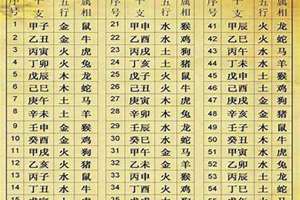 序号 干支 五行 属相 序号 干支 五行 属相 序号 干支 五行 属相
1 甲子 金 鼠 21 甲申 水 猴 41 甲辰 火 龙
2 乙丑 金 牛 22 乙酉 水 鸡 42 乙巳 火 蛇
3 丙寅 火 虎 23 丙戌 土 狗 43 丙午 水 马
4 丁卯 火 兔 24 丁亥 土 猪 44 丁未 水 羊
5 戊辰 木 龙 25 戊子 火 鼠 45 戊申 土 猴
6 己巳 木 蛇 26 己丑 火 牛 46 己酉 土 鸡
7 庚午 土 马 27 庚寅 木 虎 47 庚戌 金 狗
8 辛未 土 羊 28 辛卯 木 兔 48 辛亥 金 猪
9 壬申 金 猴 29 壬辰 水 龙 49 壬子 木 鼠
10 癸酉 金 鸡 30 癸巳 水 蛇 50 癸丑 木 牛
11 甲戌 火 狗 31 甲午 金 马 51 甲寅 水 虎
12 乙亥 火 猪 32 乙未 金 羊 52 乙卯 水 兔
13 丙子 水 鼠 33 丙申 火 猴 53 丙辰 土 龙
14 丁丑 水 牛 34 丁酉 火 鸡 54 丁巳 土 蛇
15 戊寅 土 虎 35 戊戌 木 狗 55 戊午 火 马